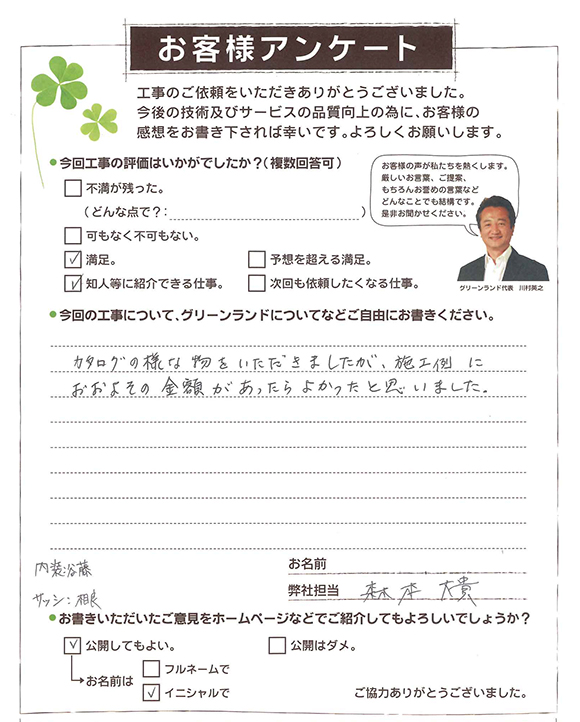 お客様アンケート
工事のご依頼をいただきありがとうございました。
今後の技術及びサービスの品質向上の為に、お客様の
感想をお書き下されば幸いです。よろしくお願いします。
●今回工事の評価はいかがでしたか?(複数回答可)
不満が残った。
(どんな点で?: )
可もなく不可もない。
✓ 満足。
予想を超える満足。
✓ 知人等に紹介できる仕事。
次回も依頼したくなる仕事。
お客様の声が私たちを熱くします。
厳しいお言葉、ご提案、
もちろんお誉めの言葉など
どんなことでも結構です。
是非お聞かせください。
グリーンランド代表 川村英之
●今回の工事について、グリーンランドについてなどご自由にお書きください。
カタログの様な物をいただきましたが、施工例に
おおよその金額があったらよかったと思いました。
内装:谷藤
サッシ:相良
お名前
弊社担当 森本 大貴
●お書きいただいたご意見をホームページなどでご紹介してもよろしいでしょうか?
✓ 公開してもよい。
公開はダメ。
お名前は
フルネームで
✓ イニシャルで
ご協力ありがとうございました。